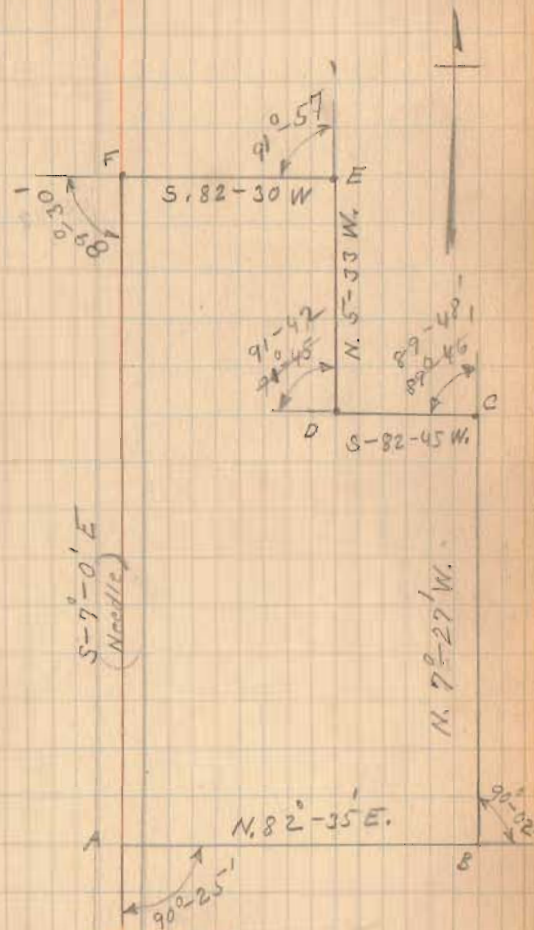 91°-57
F
E
S. 82-30 W
89°-30'
N. 5-33 W.
91-42
91°-45
89-48
89°-46
C
D
S-82-45 W.
S-7°-0' E
(Needle)
N. 7°-27' W.
A
N. 82°-35' E.
90°-02'
B
90°-25'